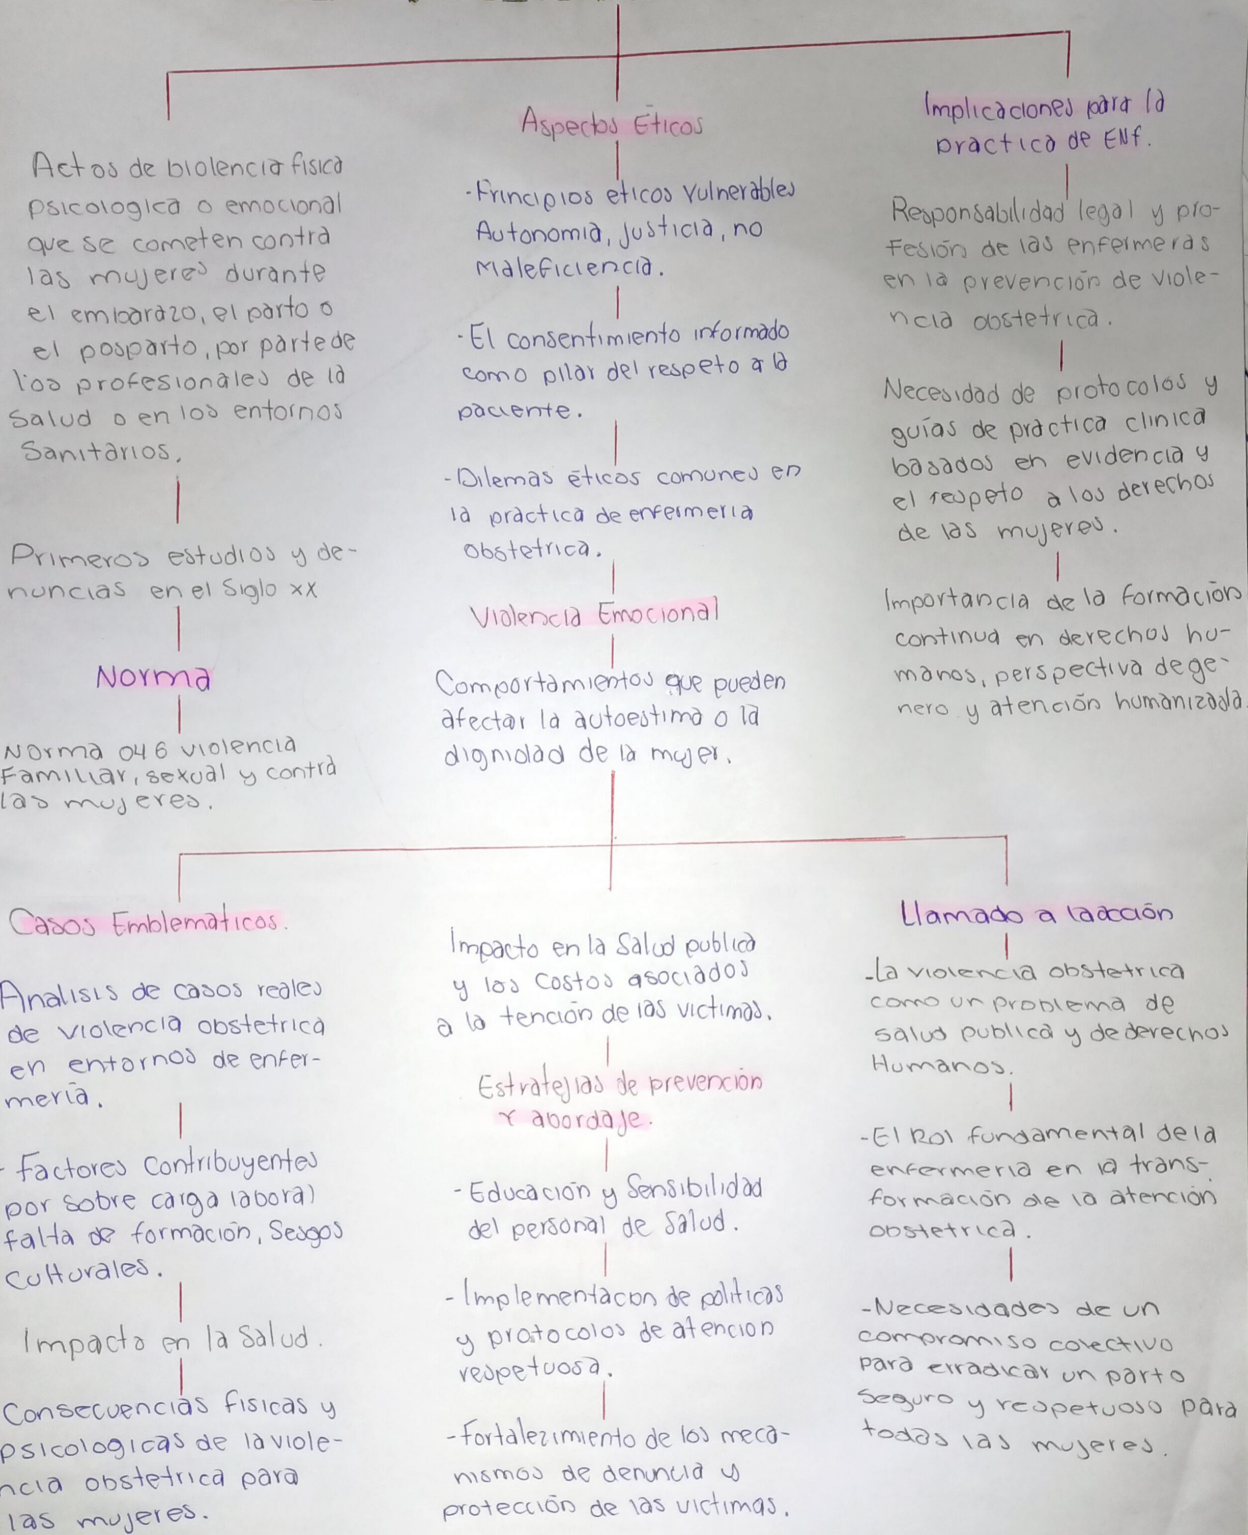 Actos de biolencia fisica
psicologica o emocional
que se cometen contra
las mujeres durante
el embarazo, el parto o
el posparto, por parte de
los profesionales de la
Salud o en los entornos
Sanitarios.
Primeros estudios y de-
nuncias en el Siglo xx
Norma
Norma 046 violencia
Familiar, sexual y contra
las mujeres.
Aspectos Éticos
-Principios eticos vulnerables
Autonomia, justicia, no
Maleficiencia.
-El consentimiento informado
como pilar del respeto a la
paciente.
-Dilemas éticos comunes en
la practica de enfermeria
obstetrica.
Violencia Emocional
Comportamientos que pueden
afectar la autoestima o la
dignidad de la mujer.
Implicaciones para la
practica de ENf.
Responsabilidad legal y pro-
fesión de las enfermeras
en la prevención de viole-
ncia obstetrica.
Necesidad de protocolos y
guías de práctica clinica
basados en evidencia y
el respeto a los derechos
de las mujeres.
Importancia de la formación
continua en derechos hu-
manos, perspectiva de ge-
nero y atención humanizada
Casos Emblematicos.
Analisis de casos reales
de violencia obstetrica
en entornos de enfer-
mería.
- Factores Contribuyentes
por sobre carga laboral
falta de formación, Sesgos
Culturales.
Impacto en la Salud.
Consecuencias fisicas y
psicologicas de la viole-
ncia obstetrica para
las mujeres.
Impacto en la Salud publica
y los Costos asociados
a la tención de las victimas.
Estratejias de prevención
Y abordaje.
-Educación y Sensibilidad
del personal de Salud.
-Implementacon de politicas
y protocolos de atencion
respetuosa.
-fortalezimiento de los meca-
nismos de denuncia y
protección de las victimas.
Llamado a la acción
-La violencia obstetrica
como un problema de
salud publica y de derechos
Humanos.
-El Rol fundamental de la
enfermeria en la trans-
formación de la atención
obstetrica.
-Necesidades de un
compromiso colectivo
para erradicar un parto
Seguro y respetuoso para
todas las mujeres.